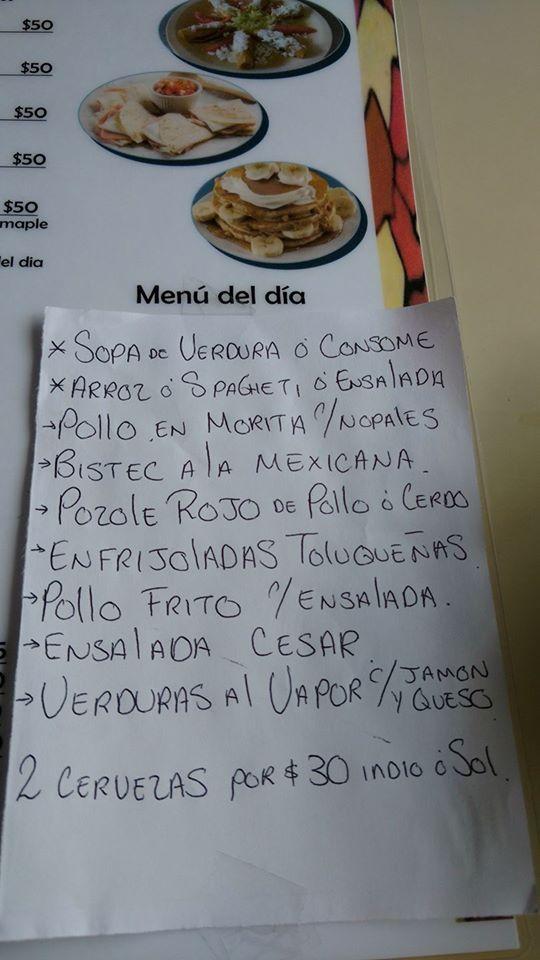 $50
$50
$50
$50
$50
maple
el dia
Menú del día
* SOPA DE VERDURA Ó CONSOME
* ARROZ Ó SPAGHETI Ó ENSALADA
→ POLLO EN MORITA C/NOPALES
→ BISTEC A LA MEXICANA.
→ POZOLE ROJO DE POLLO Ó CERDO
→ ENFRIJOLADAS TOLUQUEÑAS.
→ POLLO FRITO C/ENSALADA.
→ ENSALADA CESAR
→ VERDURAS AL VAPOR C/JAMON Y QUESO
2 CERVEZAS POR $30 INDIO Ó SOL.